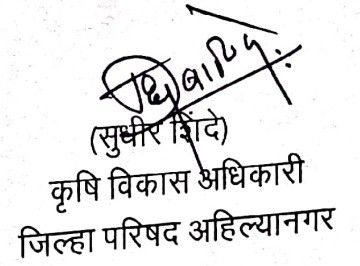 (सुधीर शिंदे)
कृषि विकास अधिकारी
जिल्हा परिषद अहिल्यानगर